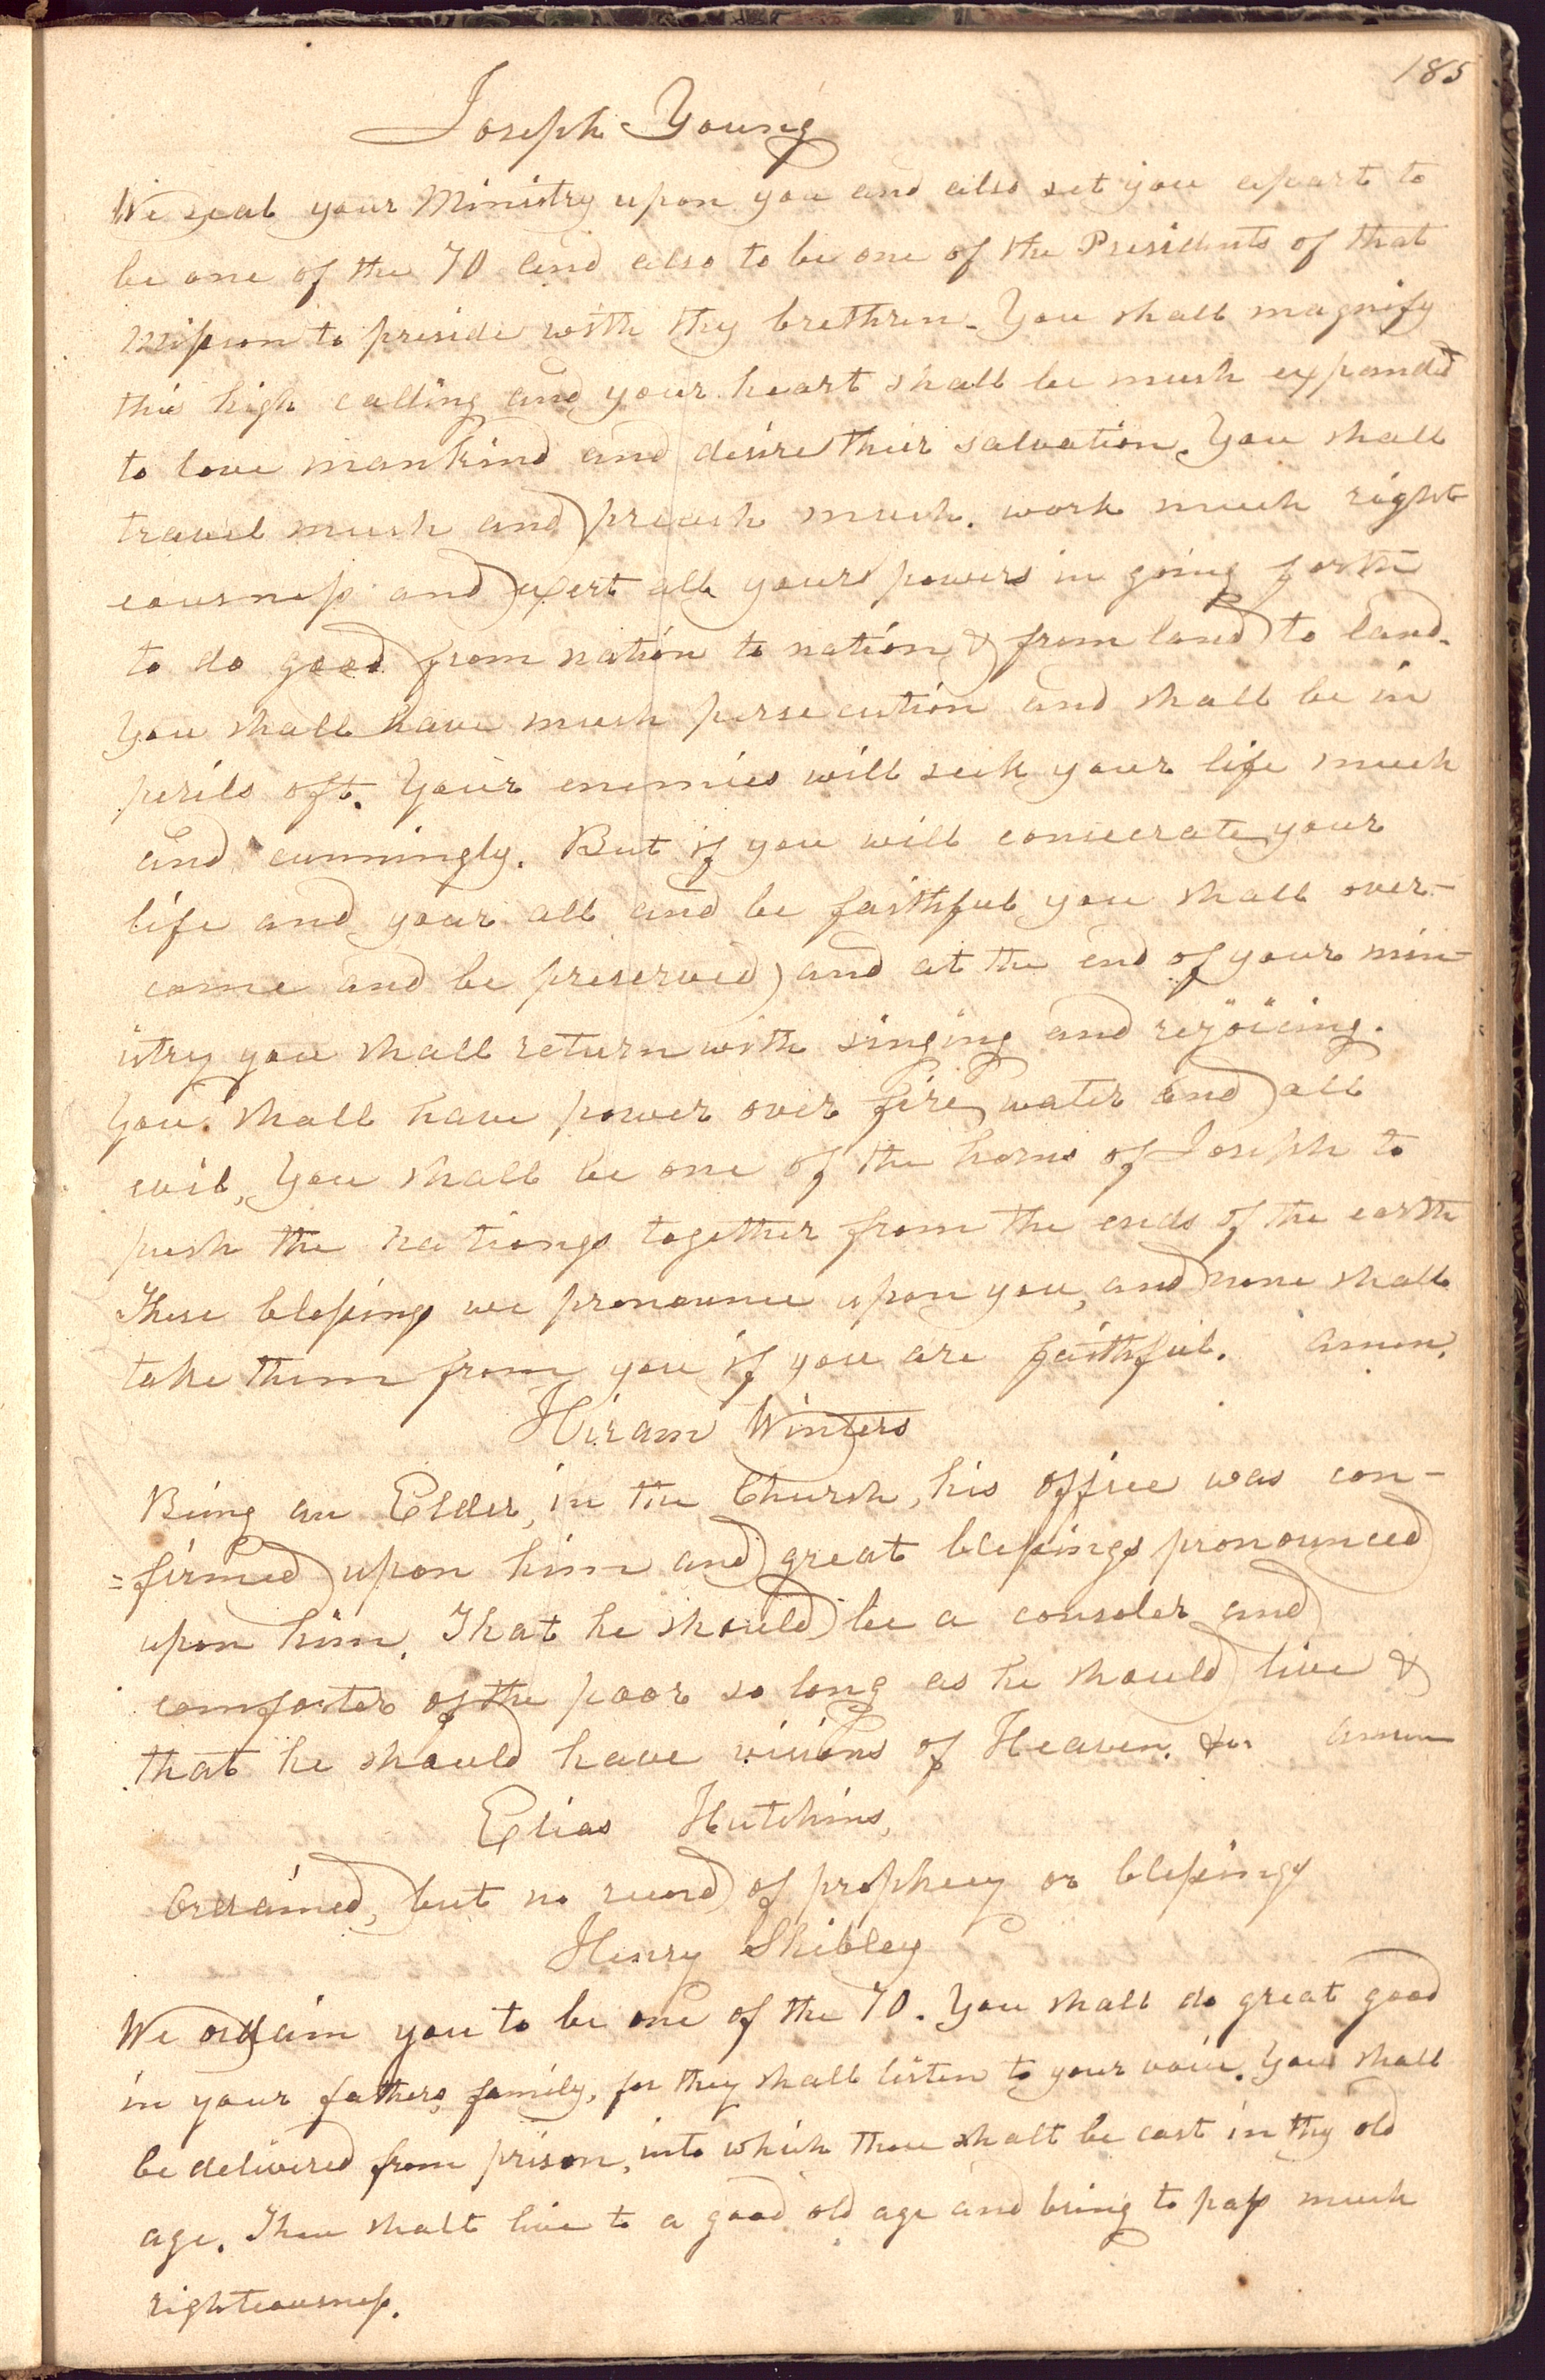 185
Joseph Young
We seal your Ministry upon you and also set you apart to
be one of the 70 and also to be one of the Presidents of that
mission to preside with thy brethren. You shall magnify
this high calling and your heart shall be much expanded
to love mankind and desire their salvation. You shall
travel much and preach much. work much right
eousness and exert all your powers in going forth
to do good from nation to nation & from land to land.
You shall have much persecution and shall be in
perils oft. Your enemies will seek your life much
and cunningly. But if you will consecrate your
life and your all and be faithful you shall over-
come and be preserved, and at the end of your min-
istry you shall return with singing and rejoicing.
You shall have power over fire, water and all
evil, You shall be one of the horns of Joseph to
push the nations together from the ends of the earth
These blessings we pronounce upon you, and none shall
take them from you if you are faithful. amen.
Hiram Winters
Being an Elder, in the Church, his office was con-
=firmed upon him and great blessings pronounced
upon him. That he should be a consoler and
comforter of the poor so long as he should live &
that he should have visions of Heaven. &c amen
Elias Hutchins,
Ordained, but no record of prophecy or blessings
Henry Shibley
We ordain you to be one of the 70. You shall do great good
in your fathers family, for they shall listen to your voice. You shall
be delivered from prison, into which thou shalt be cast in thy old
age. Thou shalt live to a good old age and bring to pass much
righteousness.